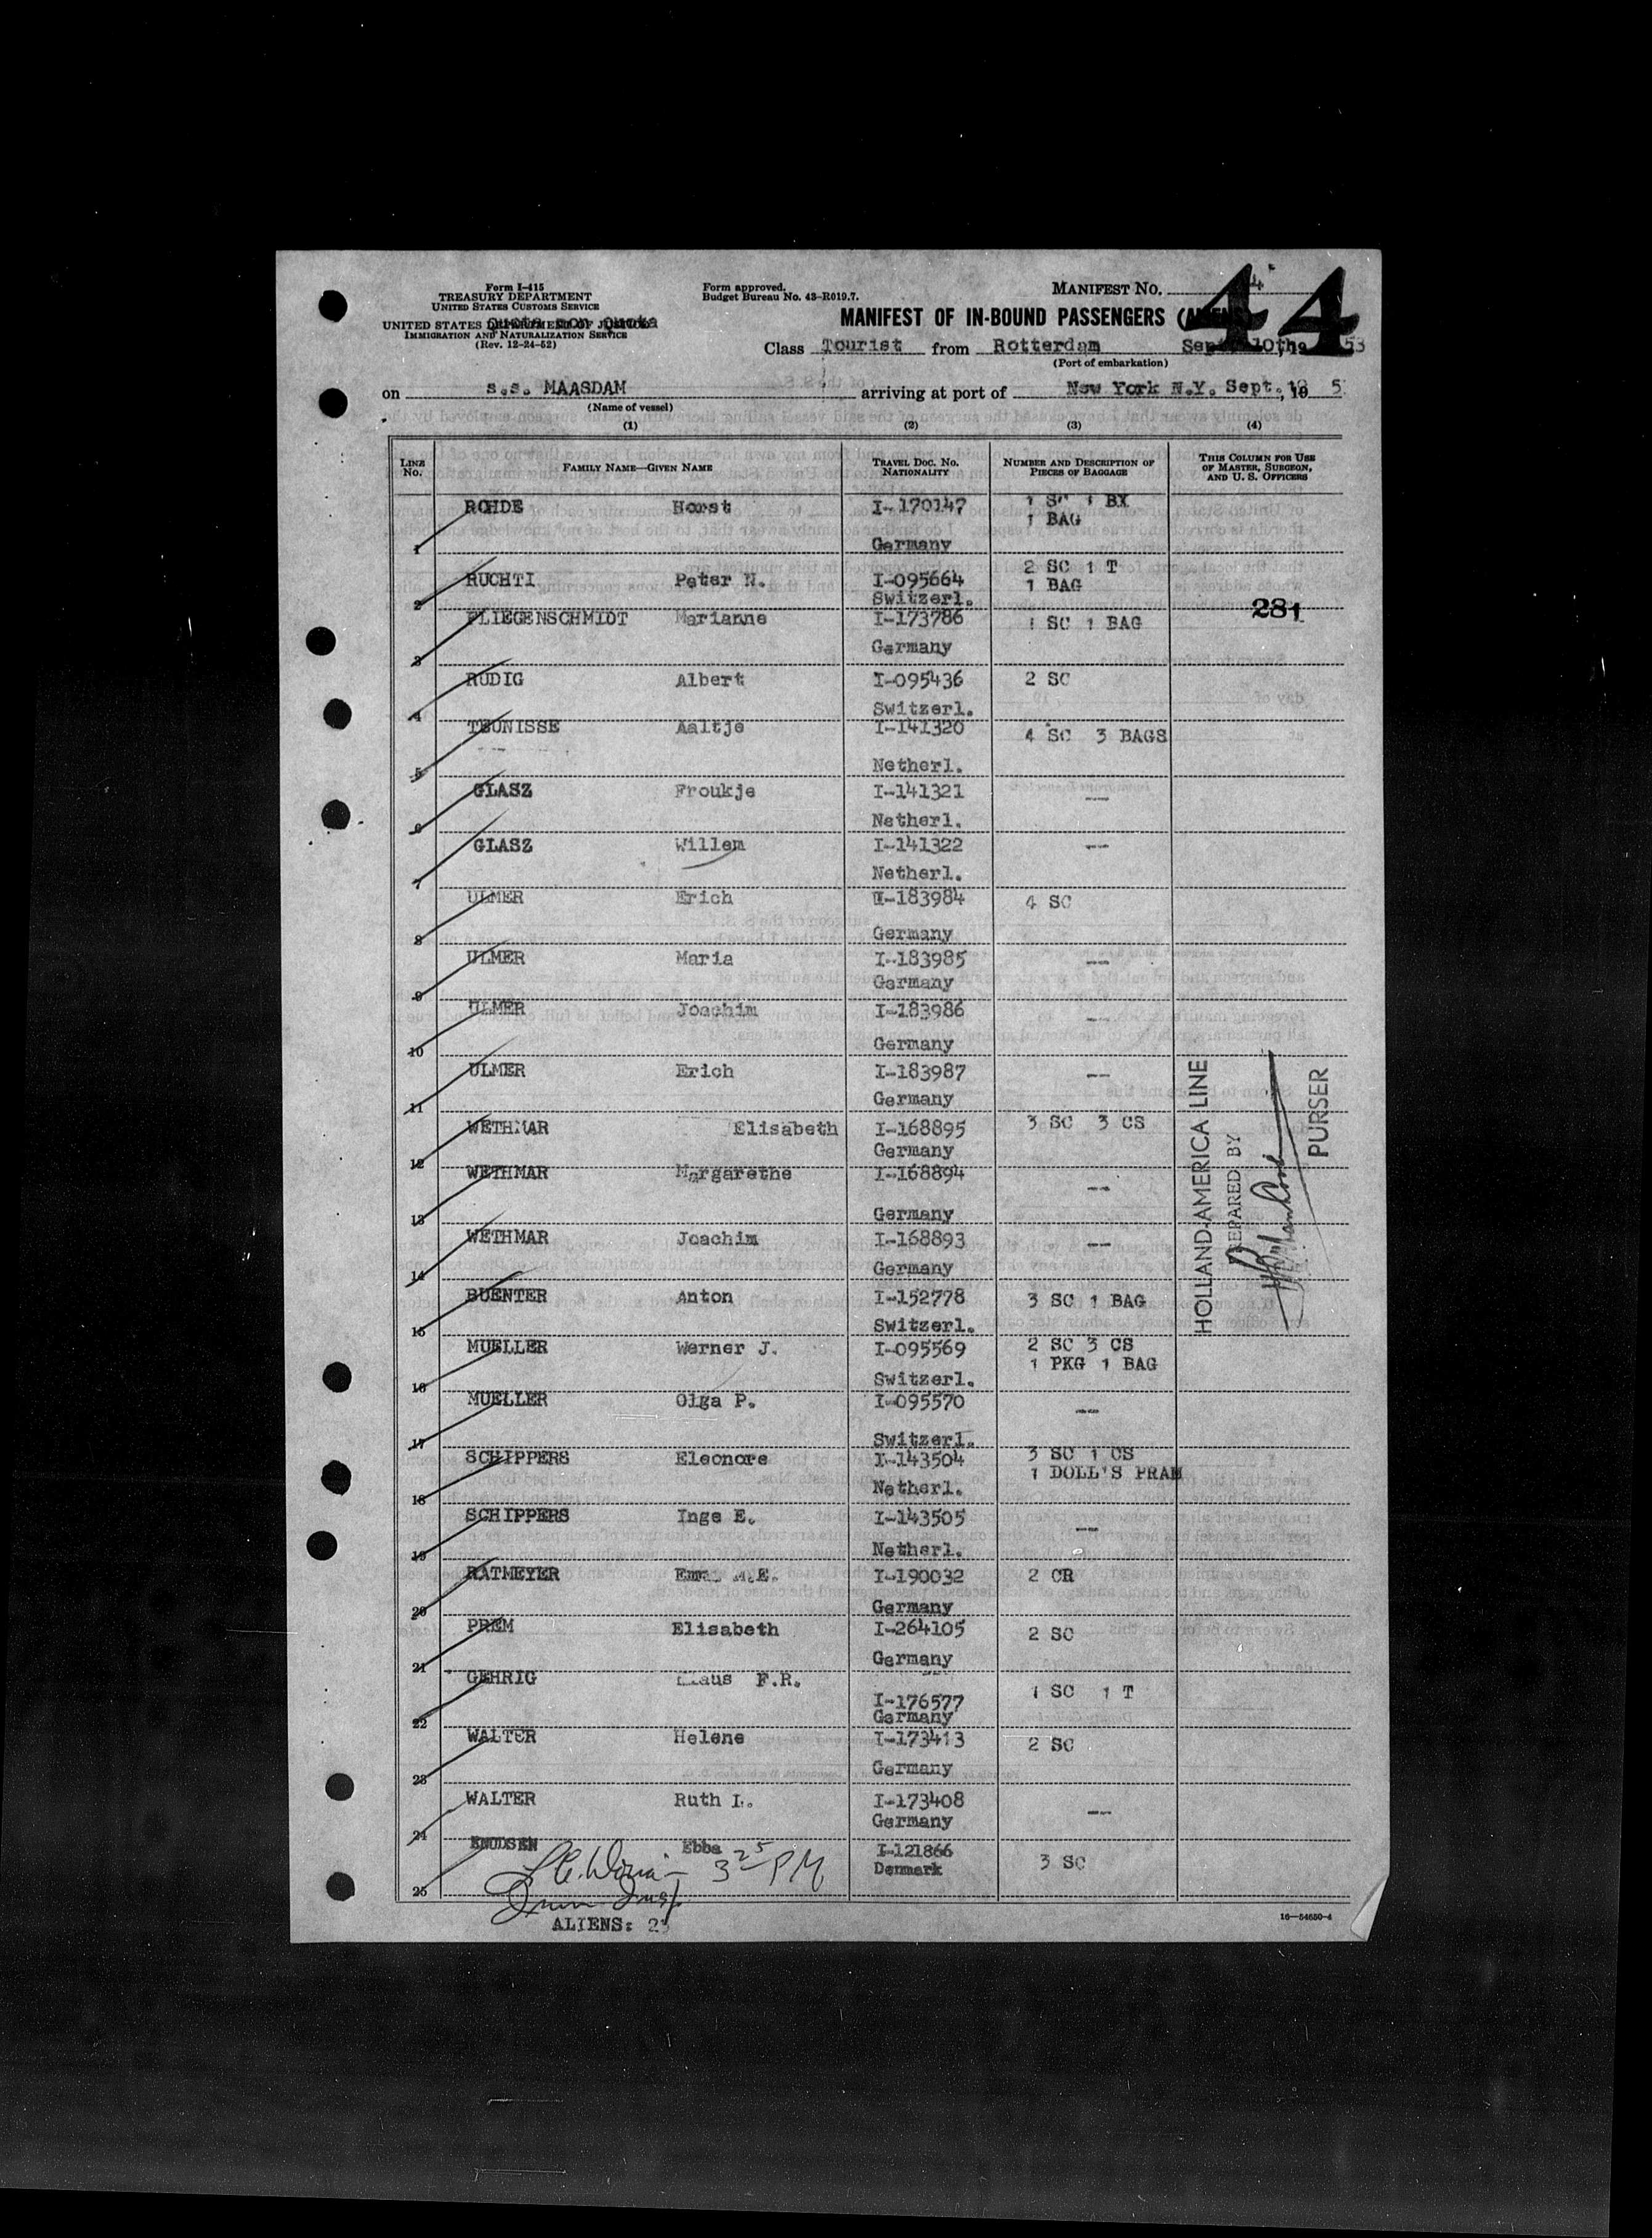 Form I-415
TREASURY DEPARTMENT
UNITED STATES CUSTOMS SERVICE
UNITED STATES DEPARTMENT OF JUSTICE
Quota non quota
IMMIGRATION AND NATURALIZATION SERVICE
(Rev. 12-24-52)
Form approved.
Budget Bureau No. 43-R019.7.
MANIFEST NO.
44
MANIFEST OF IN-BOUND PASSENGERS (ALIENS)
Class Tourist from Rotterdam Sept. 10th 53
(Port of embarkation)
on s.s. MAASDAM arriving at port of New York N.Y. Sept.
(Name of vessel)
(1) (2) (3) (4)
LINE NO. FAMILY NAME—GIVEN NAME TRAVEL DOC. NO. NATIONALITY NUMBER AND DESCRIPTION OF PIECES OF BAGGAGE THIS COLUMN FOR USE OF MASTER, SURGEON, AND U. S. OFFICERS
1 ROHDE Horst I-170147 Germany 1 SC 1 BX 1 BAG
2 RUCHTI Peter N. I-095664 Switzerl. 2 SC 1 T 1 BAG
281
3 FLIEGENSCHMIDT Marianne I-173786 Germany 1 SC 1 BAG
4 RUDIG Albert I-095436 Switzerl. 2 SC
5 TEUNISSE Aaltje I-141320 Netherl. 4 SC 3 BAGS
6 GLASZ Froukje I-141321 Netherl. --
7 GLASZ Willem I-141322 Netherl. --
8 ULMER Erich I-183984 Germany 4 SC
9 ULMER Maria I-183985 Germany --
10 ULMER Joachim I-183986 Germany --
11 ULMER Erich I-183987 Germany --
12 WETHMAR Elisabeth I-168895 Germany 3 SC 3 CS
13 WETHMAR Margarethe I-168894 Germany --
14 WETHMAR Joachim I-168893 Germany --
15 BUENTER Anton I-152778 Switzerl. 3 SC 1 BAG
16 MUELLER Werner J. I-095569 Switzerl. 2 SC 3 CS 1 PKG 1 BAG
17 MUELLER Olga P. I-095570 Switzerl. --
18 SCHIPPERS Eleonore I-143504 Netherl. 3 SC 1 CS 1 DOLL'S PRAM
19 SCHIPPERS Inge E. I-143505 Netherl. --
20 RATMEYER Emma M.E. I-190032 Germany 2 CR
21 PREM Elisabeth I-264105 Germany 2 SC
22 GEHRIG Klaus F.R. I-176577 Germany 1 SC 1 T
23 WALTER Helene I-173413 Germany 2 SC
24 WALTER Ruth I. I-173408 Germany --
25 KNUDSEN Ebba I-121866 Denmark 3 SC
HOLLAND-AMERICA LINE
PREPARED BY
PURSER
3 25 PM
ALIENS:
16—54650-4